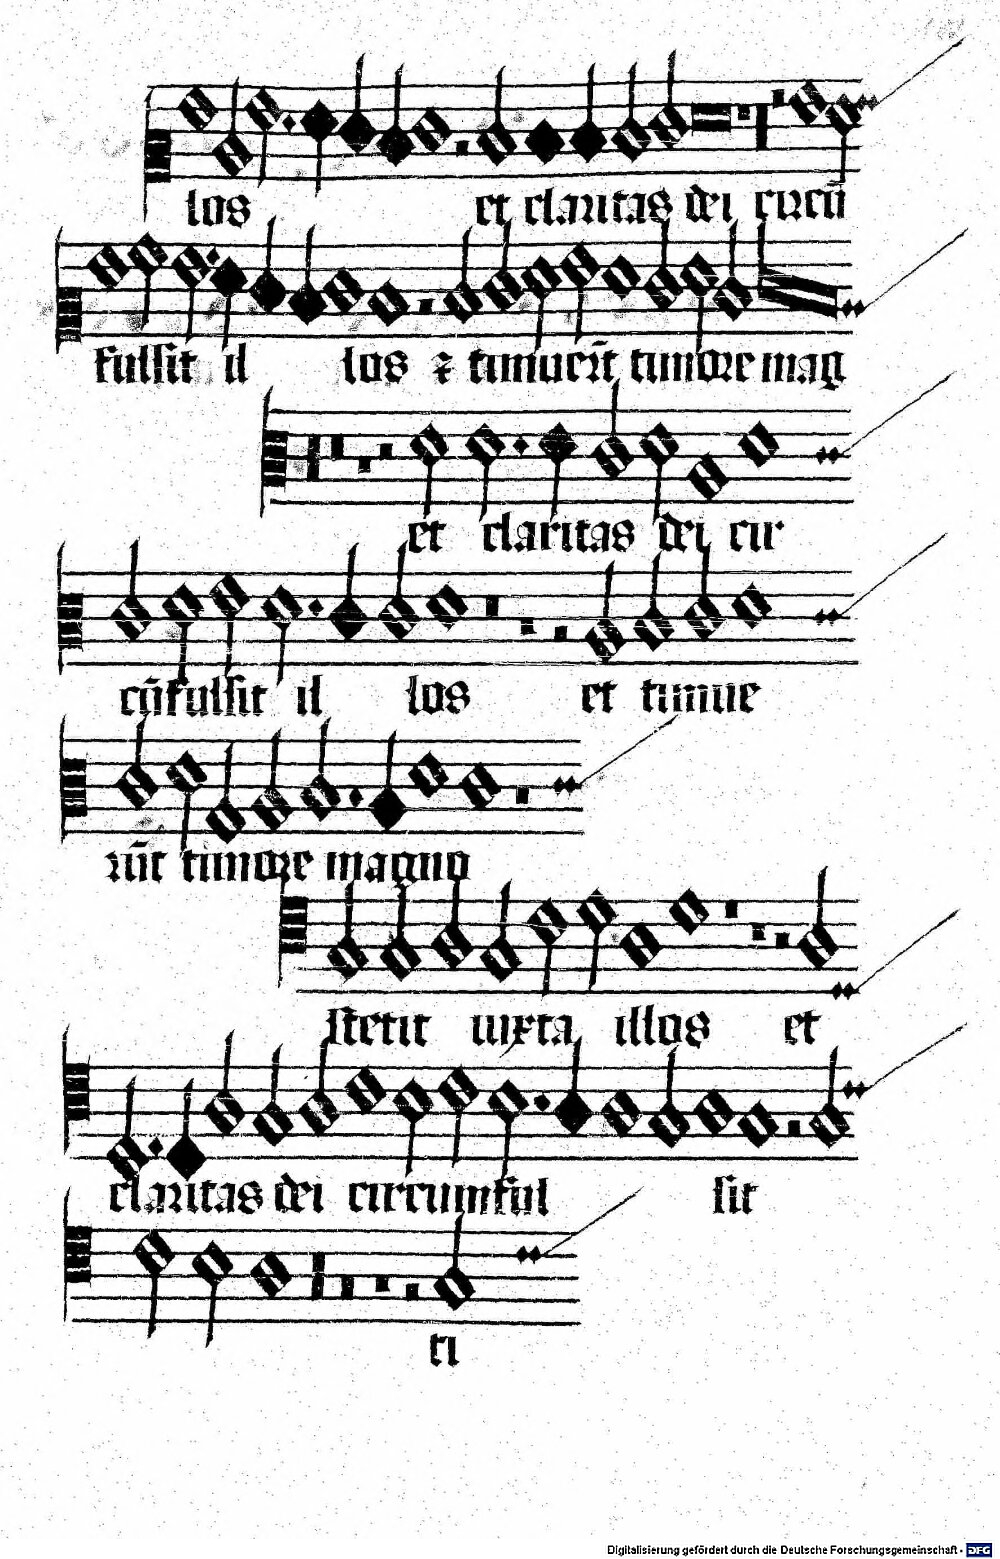 los et claritas dei circū
fulsit il los ⁊ timuerūt timore mag
et claritas dei cir
cūfulsit il los et timue
rūt timore magno
stetit iuxta illos et
claritas dei circumful sit
ti
Digitalisierung gefördert durch die Deutsche Forschungsgemeinschaft - DFG